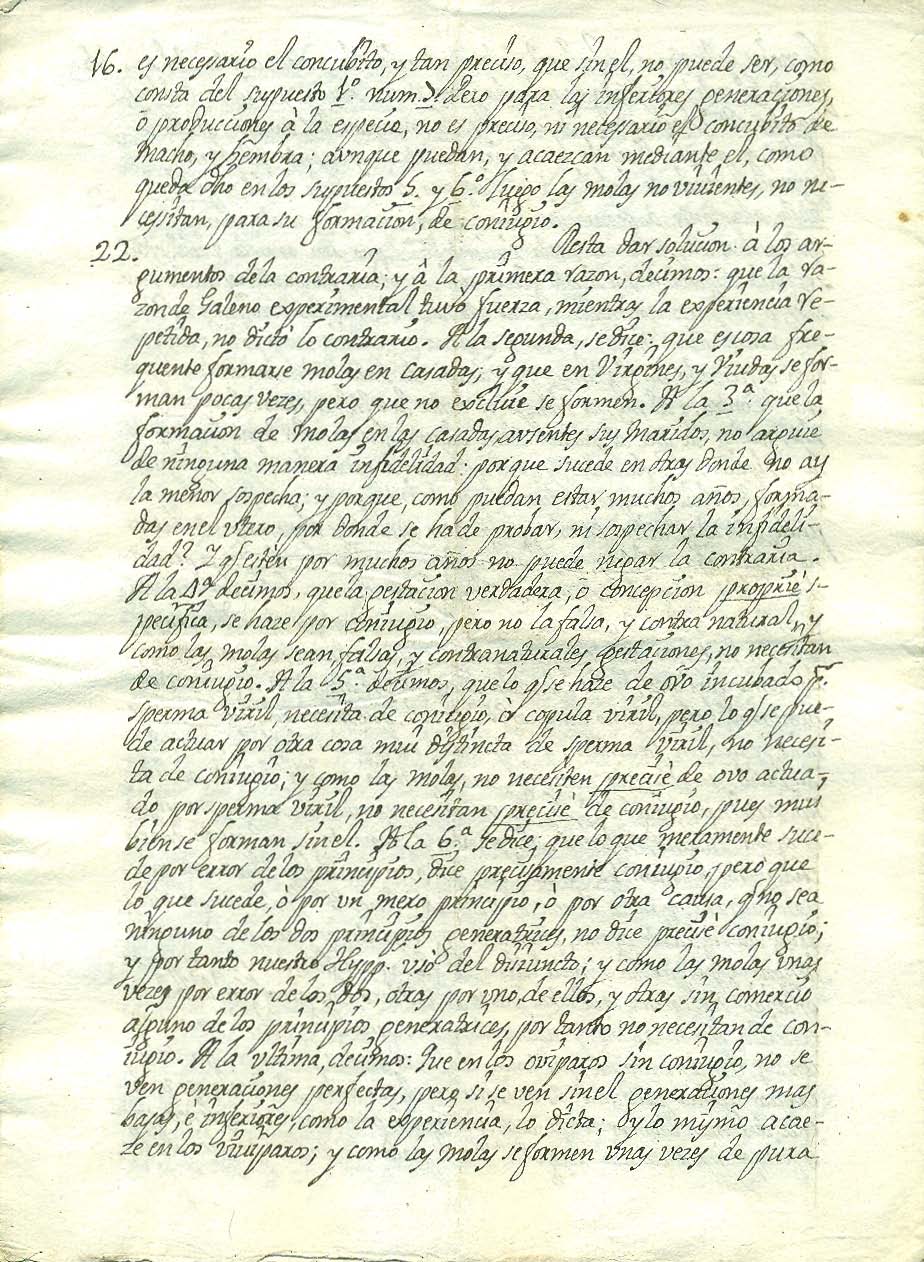 16. es necesario el concubito, y tan preciso, que sin el, no puede ser, como
consta del supuesto 1º. num. Pero para las inferiores generaciones,
ò producciones à la especie, no es preciso, ni necesario el concubito de
Macho, y hembra; aunque puedan, y acaezcan mediante el, como
queda dho en los supuestos 5. y 6.º Luego las molas no vivientes, no ne-
cesitan, para su formacion, de coniugio.
22. Resta dar solucion à los ar-
gumentos de la contraria; y â la primera razon, decimos: que la ra-
zon de Galeno experimental tuvo fuerza, mientras la experiencia re-
petida, no dictò lo contrario. A la segunda, se dice: que es cosa fre-
quente formarse molas en casadas; y que en Virgines, y Viudas se for-
man pocas vezes, pero que no excluie se formen. A la 3.ª que la
formacion de molas en las casadas, ausentes sus Maridos, no arguie
de ninguna manera infidelidad: porque sucede en otras donde no ay
la menor sospecha; y porque, como puedan estar muchos años, forma-
das en el utero, por donde se ha de probar, ni sospechar la infideli-
dad? Y q̃ esten por muchos años no puede negar la contraria.
A la 4ª decimos, que la gestacion verdadera, ò concepcion propriè s-
pecifica, se haze por coniugio, pero no la falsa, y contra natural, y
como las molas sean falsas, y contranaturales gestaciones, no necesitan
de coniugio. A la 5.ª decimos, que lo q̃ se haze de ovo incubado pr.
sperma viril, necesita de coniugio, òr copula viril, pero lo q̃ se pue-
de actuar por otra cosa mui distincta de sperma viril, no necesi-
ta de coniugio; y como las molas, no necesiten precisè de ovo actua-
do por sperma viril, no necesitan precisè de coniugio, pues mui
bien se forman sin el. A la 6.ª se dice; que lo que meramente suce-
de por error de los principios, dice precisamente coniugio, pero que
lo que sucede, ò por un mero principio, ò por otra causa, q̃ no sea
ninguno de los dos principios generatrices, no dice precisè coniugio;
y por tanto nuestro Hypp. usò del disiuncto; y como las molas unas
vezes por error de los dos, otras por uno de ellos, y otras sin comercio
alguno de los principios generatrices, por tanto no necesitan de con-
iugio. A la ultima, decimos: Que en los oviparos sin coniugio, no se
ven generaciones perfectas, pero si se ven sin el generaciones mas
bajas, è inferiores, como la experiencia, lo dicta; y lo mismo acae-
ze en los viviparos; y como las molas se formen unas vezes de pura